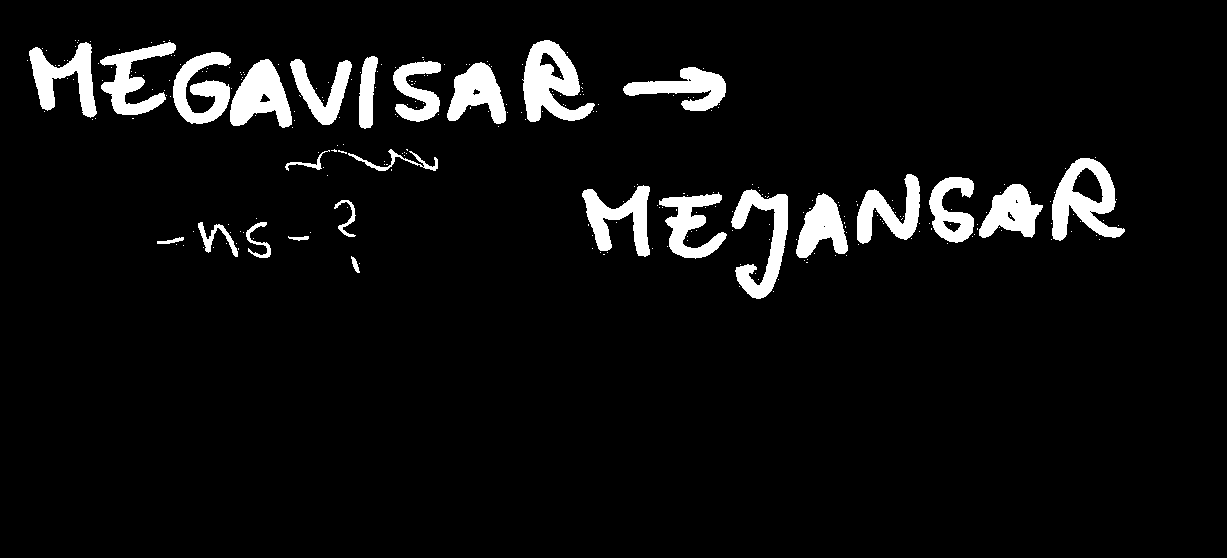 MEGAVISAR →
-ns-?
MEJANSAR